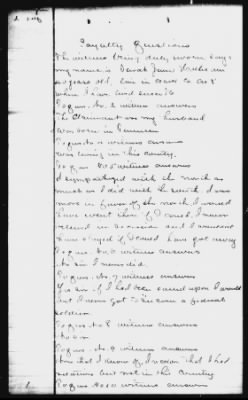 Loyalty Questions
The witness being duly sworn says
my name is Sarah Jane
years old, live in
where I have lived since
To ques No. 2 witness answers
The Claimant was my husband
was born in Tennessee
To ques No witness answers
was living in this county.
To ques No 5 witness answers
I sympathized with the north as
much as I did with the south I was
more in favor of the north I would
have went there if I could. I never
believed in secession and I would not
have stayed if I could have got away
To ques. No. 6 witness answers
No sir I never did.
To ques. No. 7 witness answers
Yes sir if I had been called upon I would
but I never got to see even a federal
soldier
To ques No 8 witness answers
No sir
To ques. No. 9 witness answers
Not that I know of, I reckon that I had
relations but not in this County
To ques No 10 witness answers